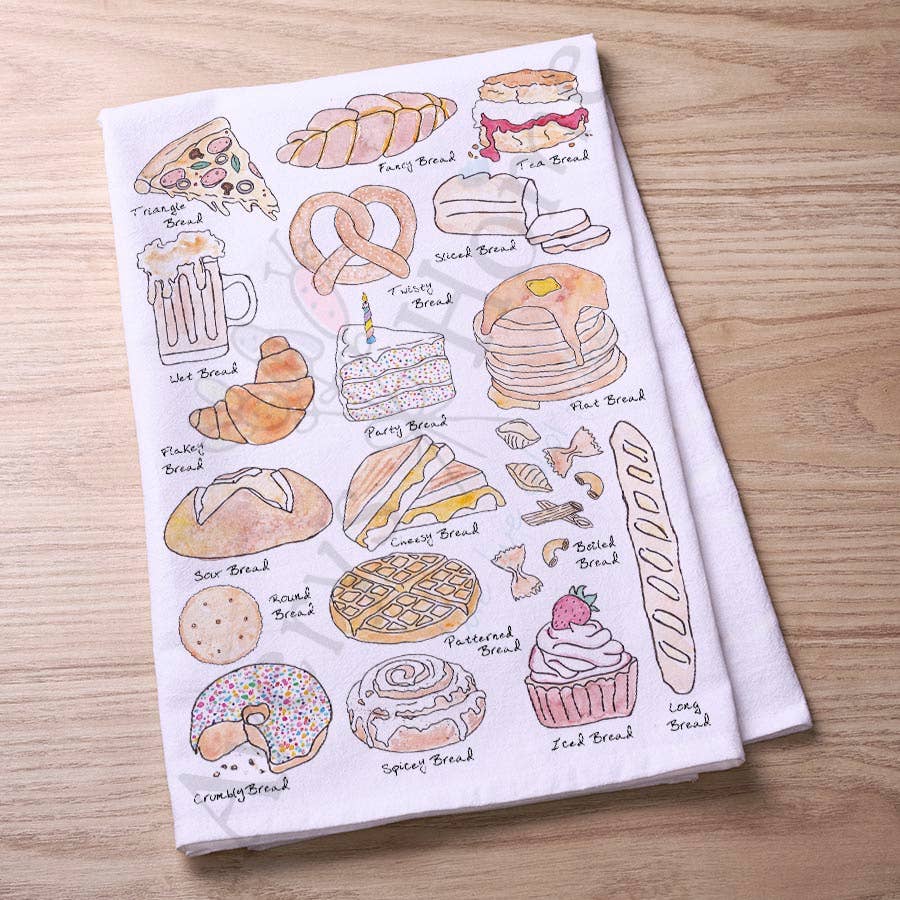 Fancy Bread
Tea Bread
Triangle
Bread
Sliced Bread
Twisty
Bread
Wet Bread
Party Bread
Flat Bread
Flakey
Bread
Cheesy Bread
Boiled
Bread
Sour Bread
Round
Bread
Patterned
Bread
Long
Bread
Iced Bread
Spicey Bread
Crumbly Bread
Home